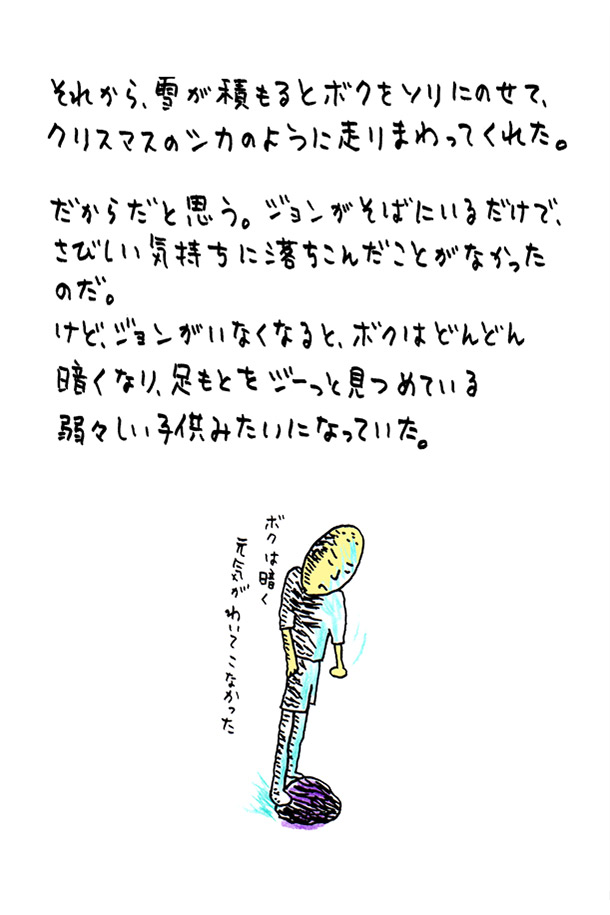 それから、雪が積もるとボクをソリにのせて、
クリスマスのシカのように走りまわってくれた。
だからだと思う。ジョンがそばにいるだけで、
さびしい気持ちに落ちこんだことがなかった
のだ。
けど、ジョンがいなくなると、ボクはどんどん
暗くなり、足もとをジーっと見つめている
弱々しい子供みたいになっていた。
ボクは暗く
元気がわいてこなかった